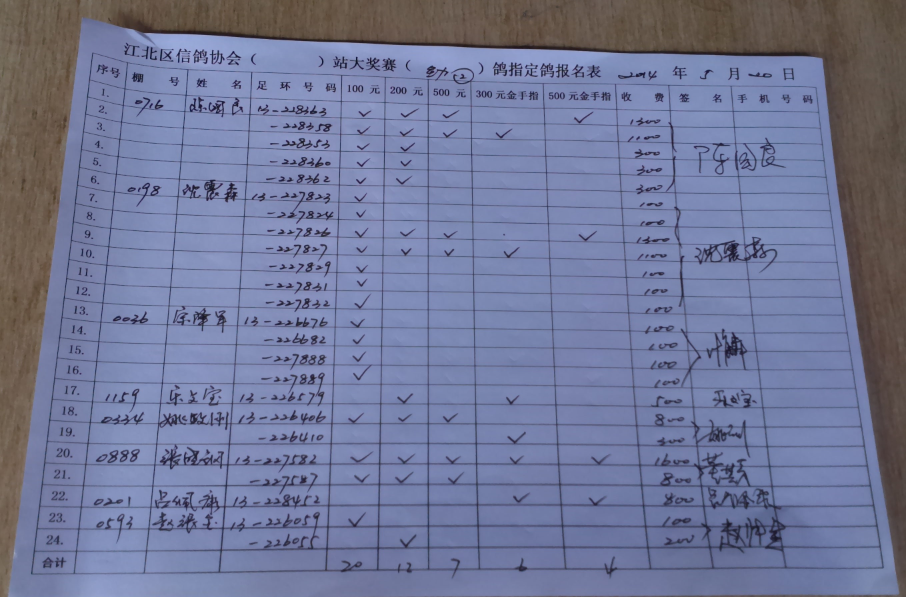 江北区信鸽协会（ ）站大奖赛（ 幼 52 ）鸽指定鸽报名表 2014 年 5 月 20 日
序号 棚 号 姓 名 足 环 号 码 100 元 200 元 500 元 300元金手指 500元金手指 收 费 签 名 手 机 号 码
1. 0716 陈国良 13-228363 ✓ ✓ ✓ ✓ 1300
2. -228358 ✓ ✓ ✓ ✓ 1100
3. -228353 ✓ ✓ 300 陈国良
4. -228360 ✓ ✓ 300
5. -228362 ✓ ✓ 300
6. 0198 沈震森 13-227823 ✓ 100
7. -227824 ✓ 100
8. -227826 ✓ ✓ ✓ ✓ 1300
9. -227827 ✓ ✓ ✓ ✓ 1100 沈震森
10. -227829 ✓ 100
11. -227831 ✓ 100
12. -227832 ✓ 100
13. 0036 宗泽军 13-226676 ✓ 100
14. -226682 ✓ 100
15. -227888 ✓ 100
16. -227889 ✓ 100
17. 1159 乐文宝 13-226579 ✓ ✓ 500 乐文宝
18. 0334 姚 13-226406 ✓ ✓ ✓ 800
19. -226410 ✓ 300
20. 0888 张 13-227582 ✓ ✓ ✓ ✓ ✓ 1600
21. -227587 ✓ ✓ ✓ 800
22. 0201 吕佩康 13-228452 ✓ ✓ 800
23. 0593 赵 13-226059 ✓ 100
24. -226055 ✓ 200
合计 20 12 7 6 4